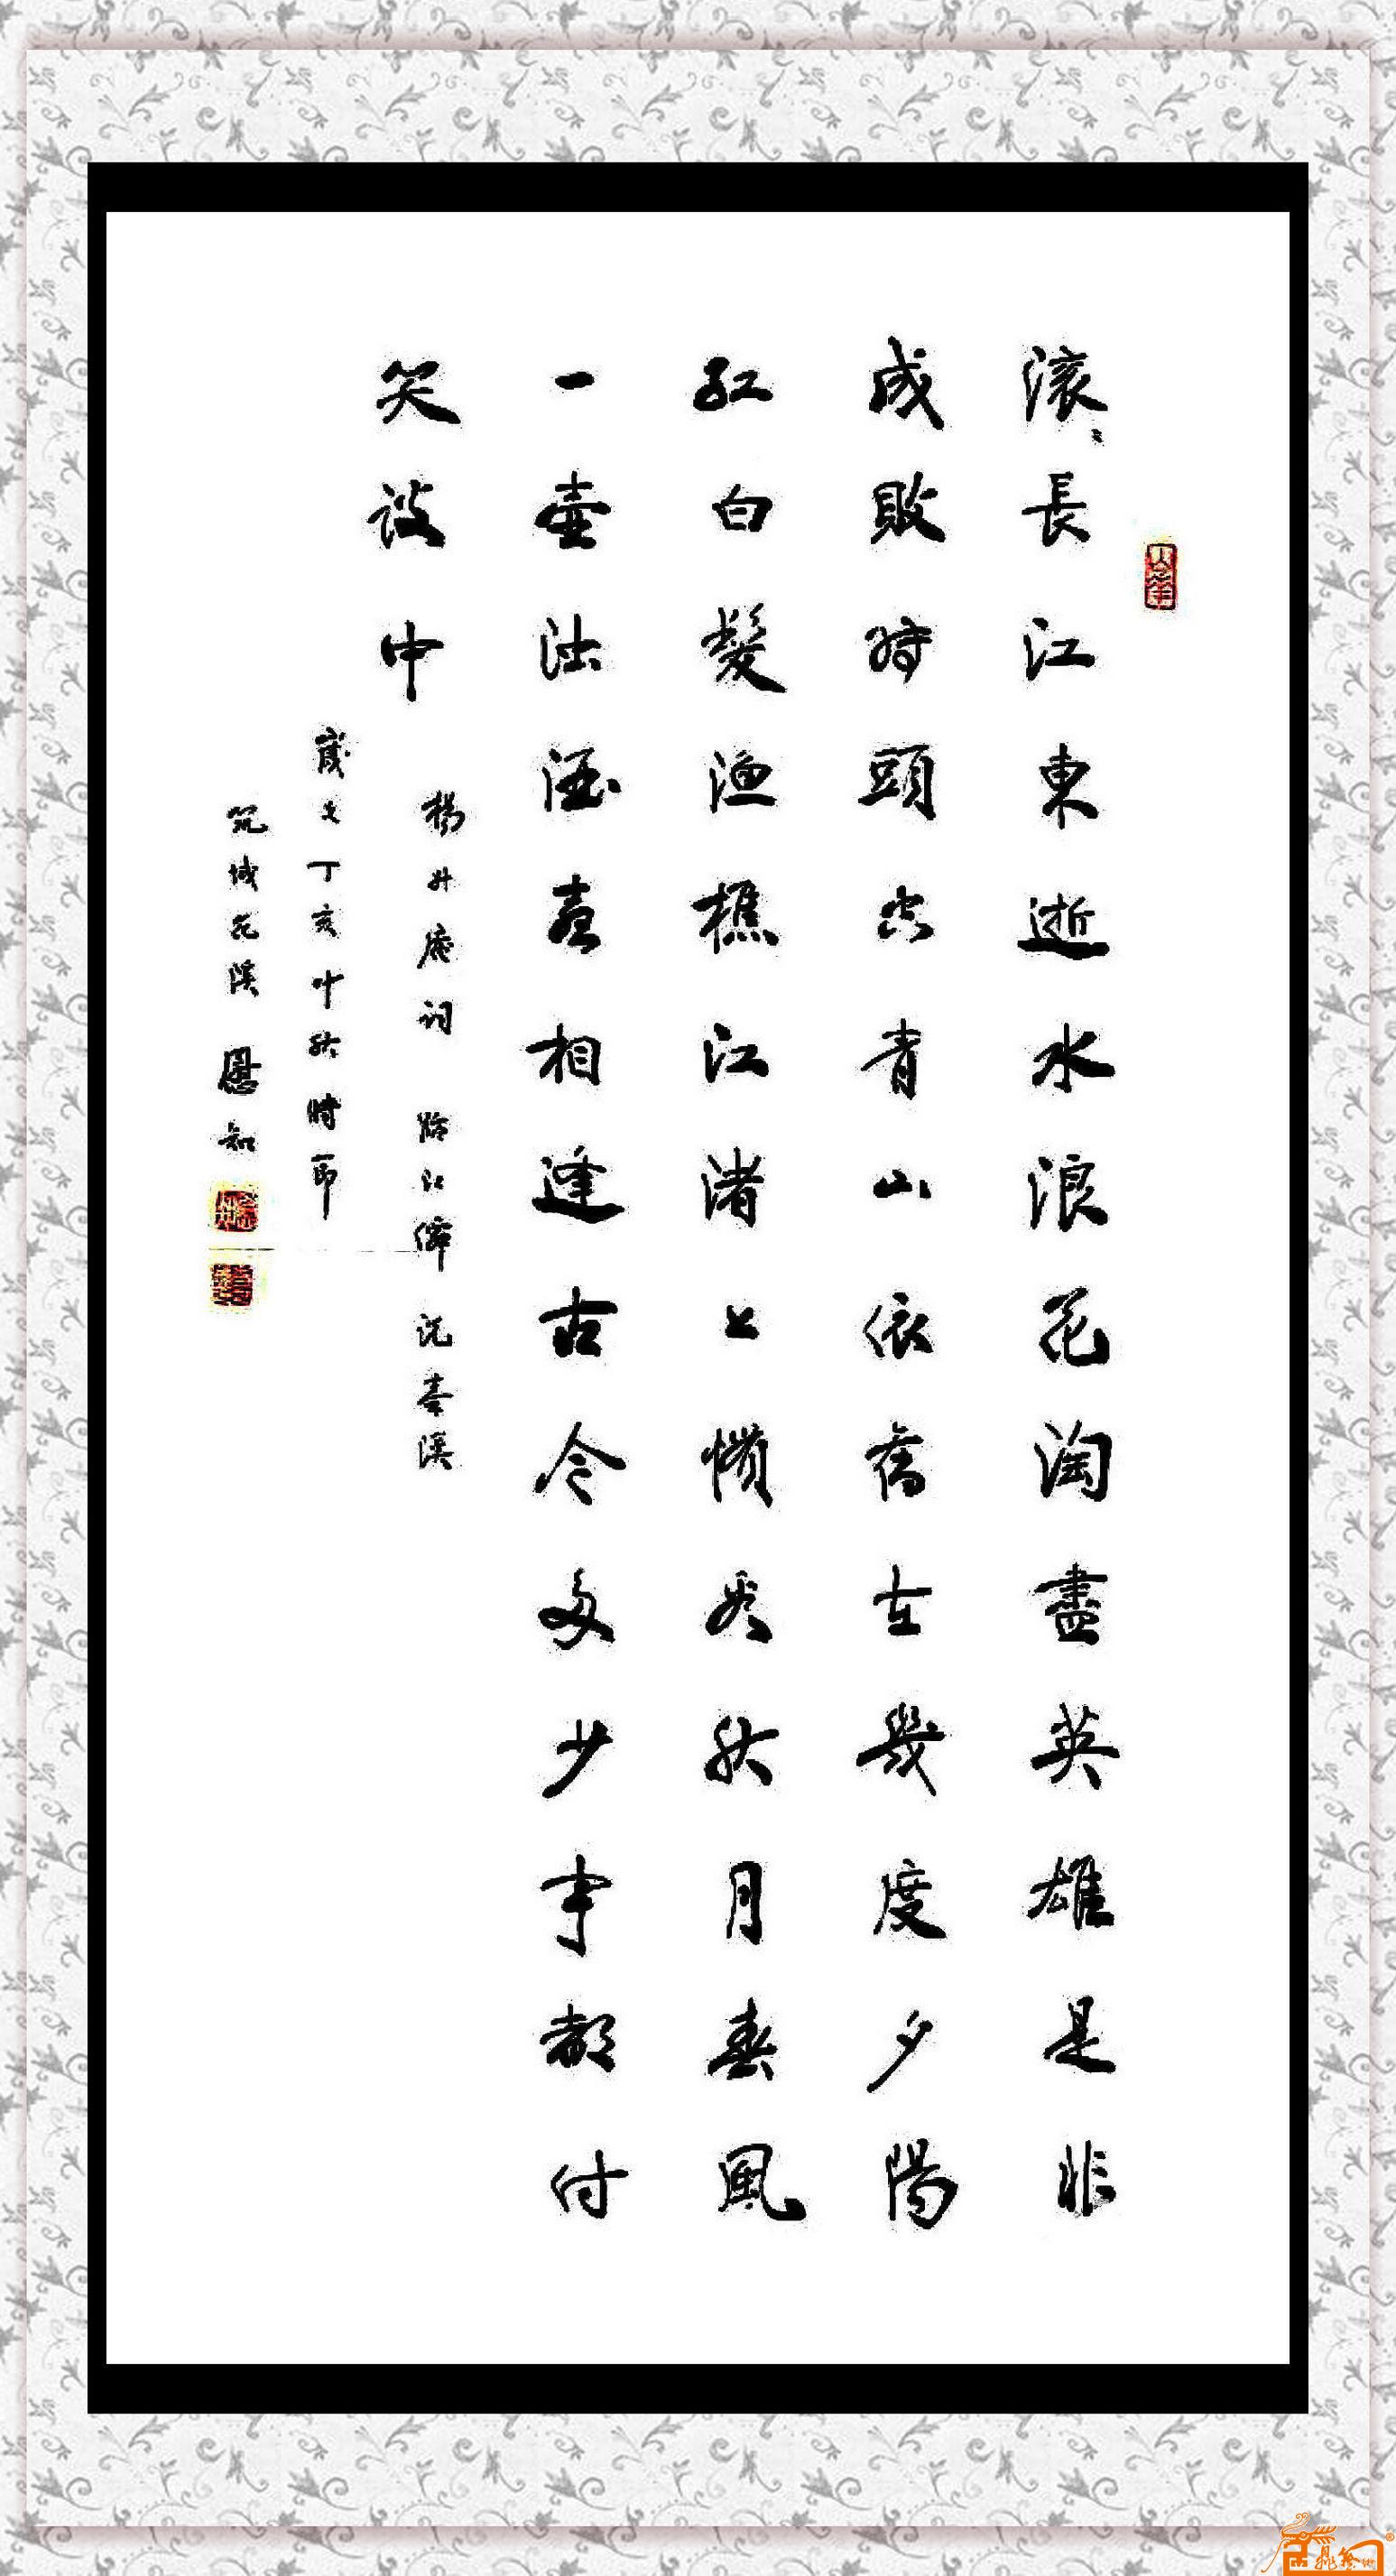 滚〻長江東逝水浪花淘盡英雄是非
成敗轉頭空青山依舊在幾度夕陽
紅白髮漁樵江渚上慣看秋月春風
一壺濁酒喜相逢古今多少事都付
笑談中
楊升庵詞 臨江僊
歲次丁亥 秋時節
筑城花溪 恩知